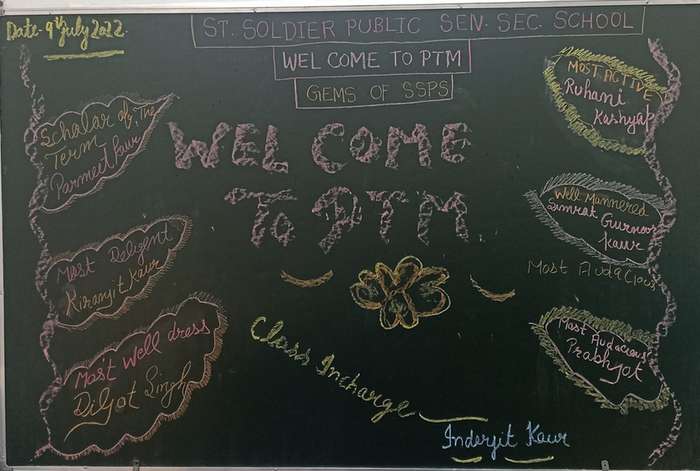 Date 9th July 2022.
ST. SOLDIER PUBLIC SEN. SEC. SCHOOL
WEL COME TO PTM
GEMS OF SSPS
Scholar of The
Term
Parmeet Kaur
Most Deligent
Kiranjit Kaur
Most Well dress
Diljot Singh
WEL COME
To PTM
Class Incharge
Inderjit Kaur
MOST ACTIVE
Ruhani
Kashyap
Well Mannered
Simrat Gurnoor
Kaur
Most Audacious
Most Audacious
Prabhjot